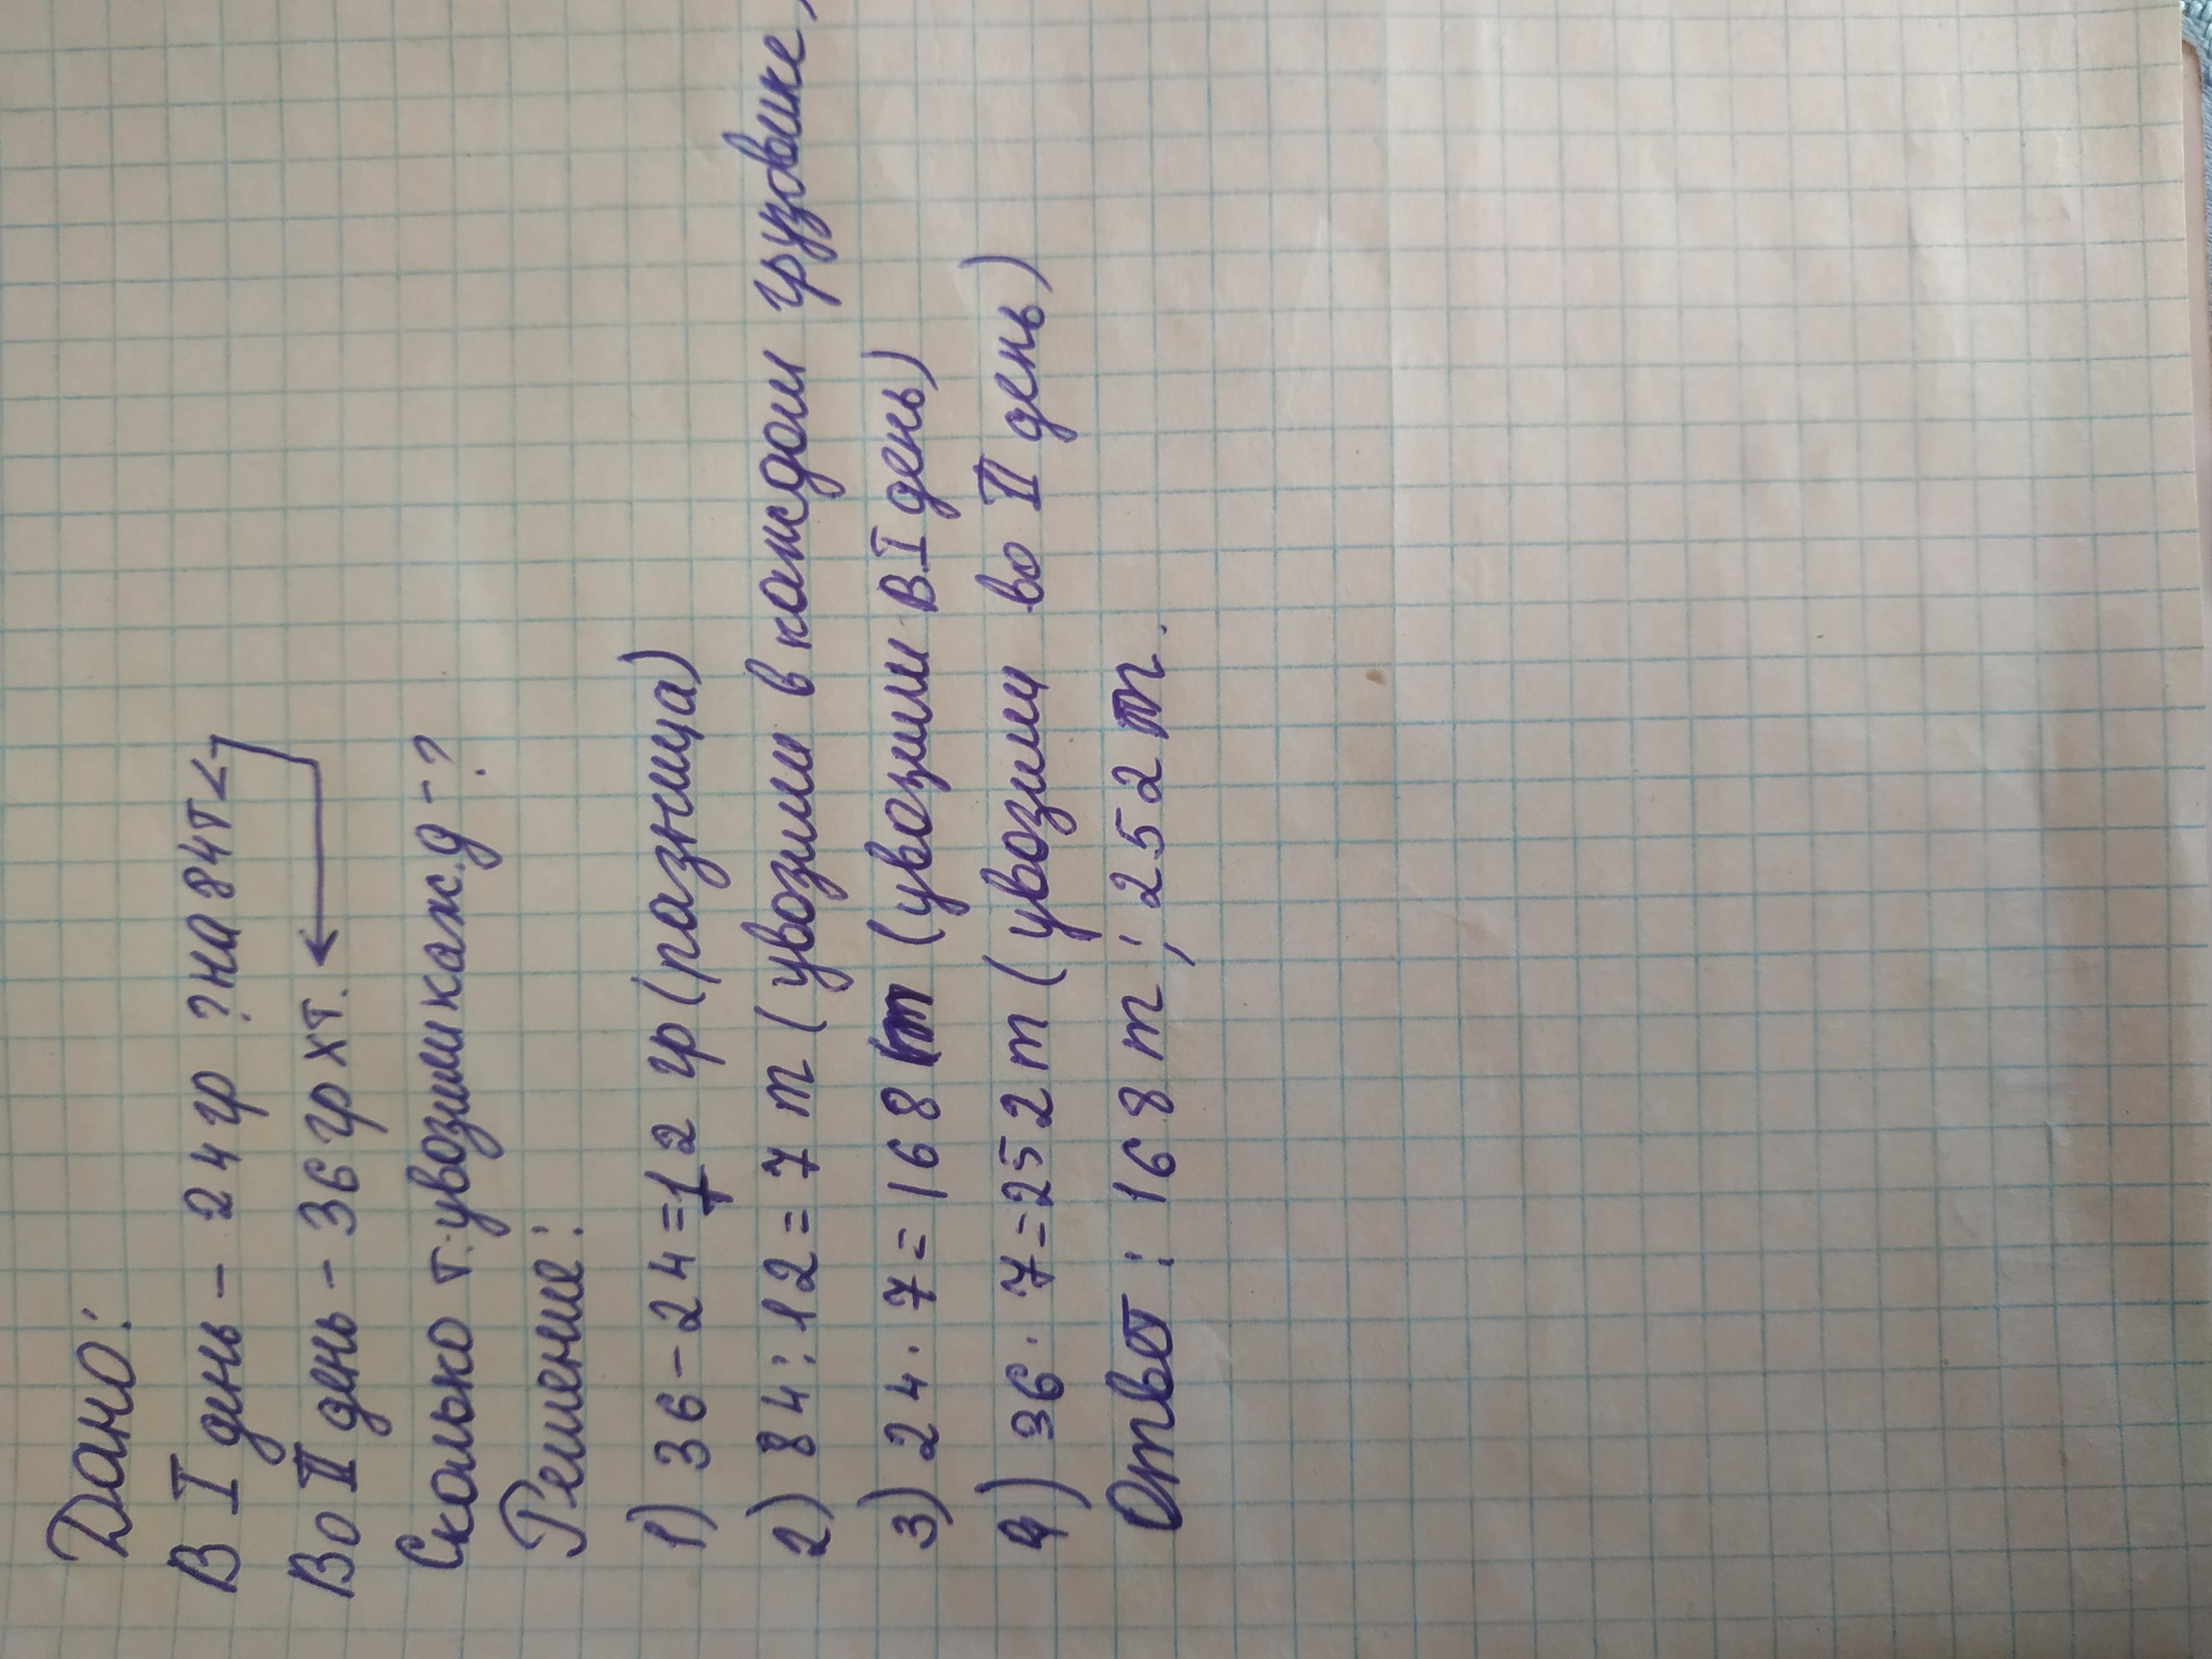 Дано:
В I день - 24 гр ? на 84т <
Во II день - 36 гр х т.
Сколько т. увозили кажд - ?
Решение:
1) 36 - 24 = 12 гр (разница)
2) 84 : 12 = 7 т (увозили в каждом грузовике)
3) 24 · 7 = 168 т (увозили в I день)
4) 36 · 7 = 252 т (увозили во II день)
Ответ : 168 т ; 252 т.